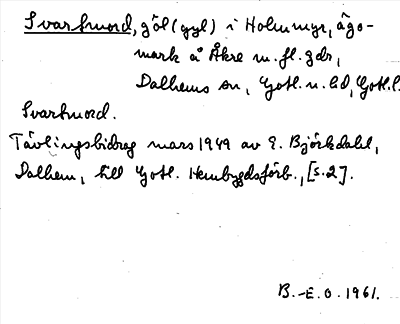 Svartmord, göl (gyl) i Holmmyr, ägo-
mark å Åkre m. fl. gdr,
Dalhems sn, Gotl. n. hd, Gotl. l.
Svartmord.
Tävlingsbidrag mars 1949 av E. Björkdahl,
Dalhem, till Gotl. Hembygdsförb., [s. 2].
B.-E. O. 1961.